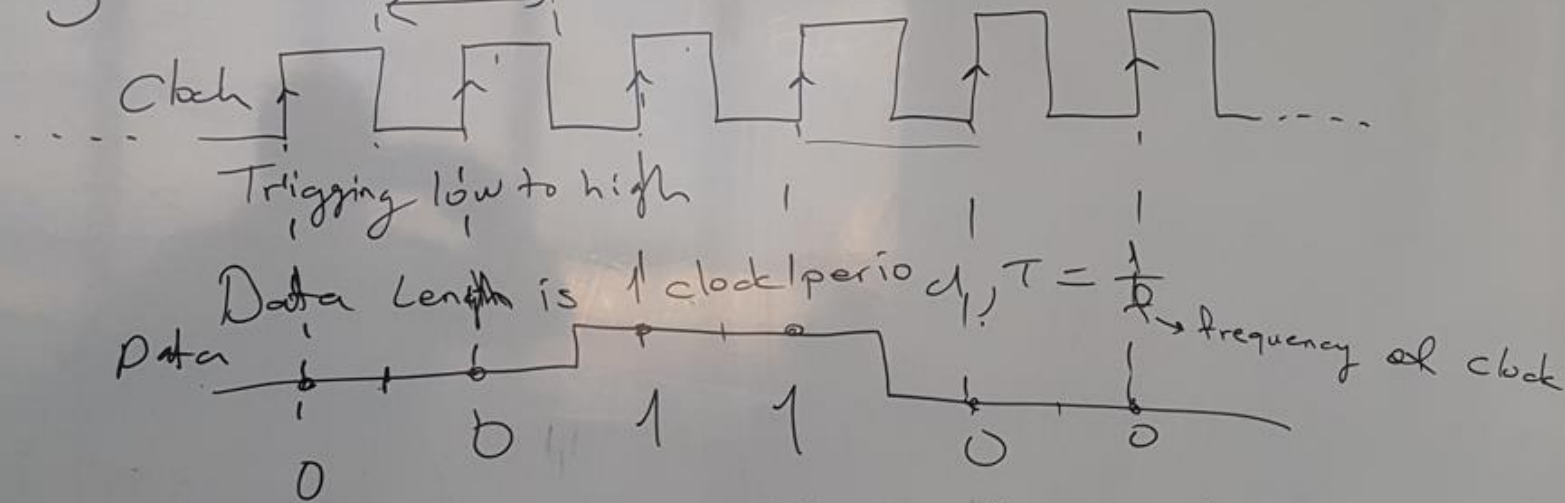 Clock
Trigging low to high
Data Length is 1 clock period, T = 1/f → frequency of clock
Data
0 0 1 1 0 0